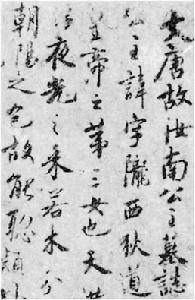 大唐故汝南公主墓誌
公主諱字隴西狄道
皇帝之第三女也天潢
浮夜光之采若木分
朝陽之色故能聰穎外